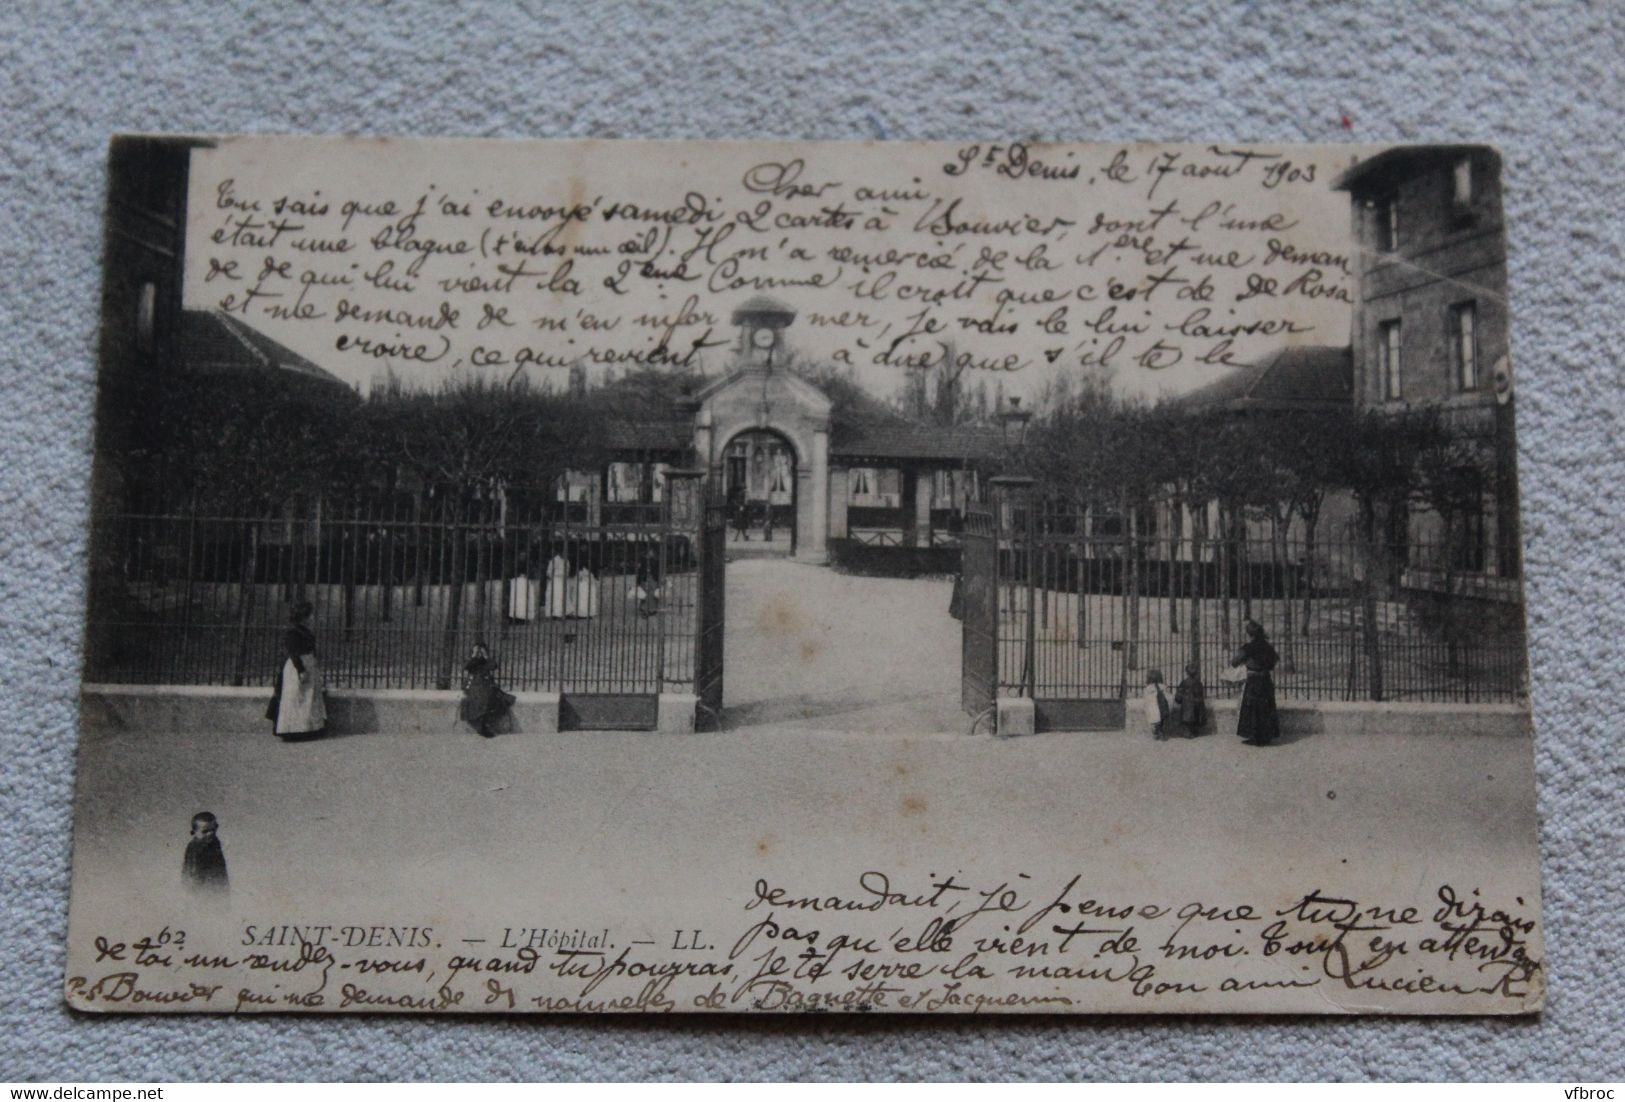 St Denis, le 17 août 1903
Cher ami,
Tu sais que j'ai envoyé samedi 2 cartes à Bouvier, dont l'une
était une blague (t'en as un œil). Il m'a remercié de la 1ère et me deman
de de qui lui vient la 2ème Comme il croit que c'est de De Rosa
et me demande de m'en infor mer, je vais le lui laisser
croire, ce qui revient à dire que s'il te le
demandait, je pense que tu ne dirais
pas qu'elle vient de moi. Tout en attendant
62 SAINT-DENIS. — L'Hôpital. — LL.
de toi un rendez-vous, quand tu pourras, je te serre la main
Ton ami Lucien R
P-S Bouvier qui me demande ds nouvelles de Baguette et Jacquemin.
delcampe.net
vfbroc